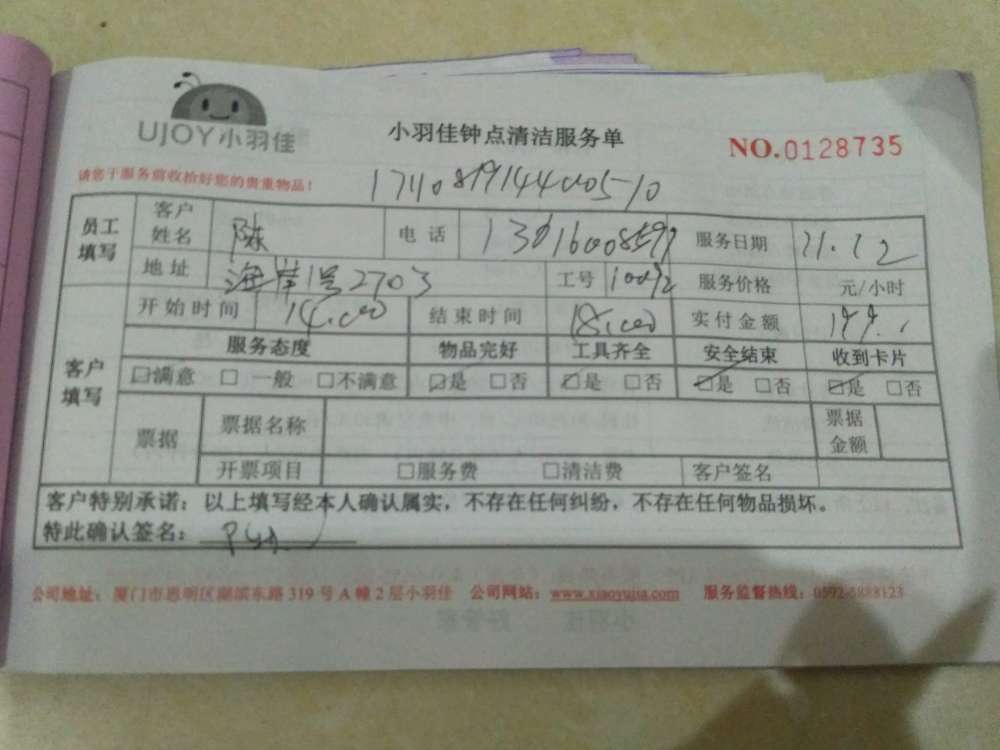 UJOY小羽佳
小羽佳钟点清洁服务单
NO.0128735
请您于服务前收拾好您的贵重物品！
员工填写 客户姓名 陈 电话 服务日期 11.12
地址 海岸1号2703 工号 服务价格 元/小时
客户填写 开始时间 14.00 结束时间 18.00 实付金额
服务态度 物品完好 工具齐全 安全结束 收到卡片
☑满意 □一般 □不满意 ☑是 □否 ☑是 □否 ☑是 □否 ☑是 □否
票据 票据名称 票据金额
开票项目 □服务费 □清洁费 客户签名
客户特别承诺：以上填写经本人确认属实，不存在任何纠纷，不存在任何物品损坏。
特此确认签名：
公司地址：厦门市思明区湖滨东路319号A幢2层小羽佳 公司网站：www.xiaoyujia.com 服务监督热线：0592-5888123